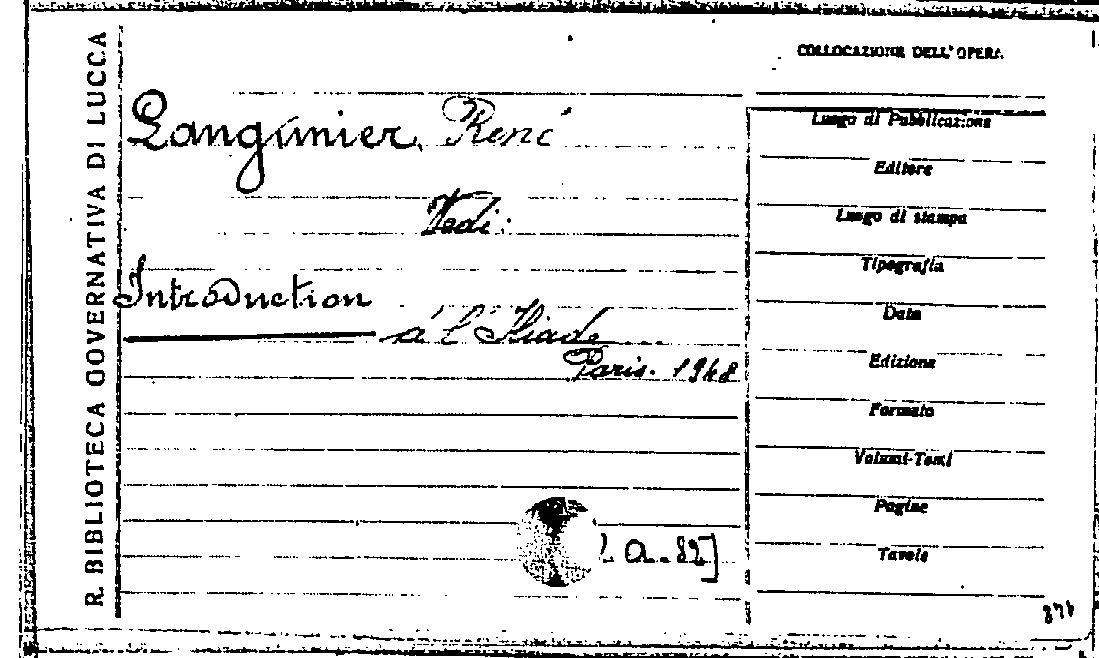 R. BIBLIOTECA GOVERNATIVA DI LUCCA
COLLOCAZIONE DELL'OPERA
Langumier, René
Vedi:
Introduction
à l'Iliade
Paris. 1948
a-82]
Luogo di Pubblicazione
Editore
Luogo di stampa
Tipografia
Data
Edizione
Formato
Volumi-Tomi
Pagine
Tavole